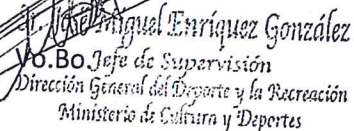 José Miguel Enríquez González
Vo.Bo. Jefe de Supervisión
Dirección General del Deporte y la Recreación
Ministerio de Cultura y Deportes